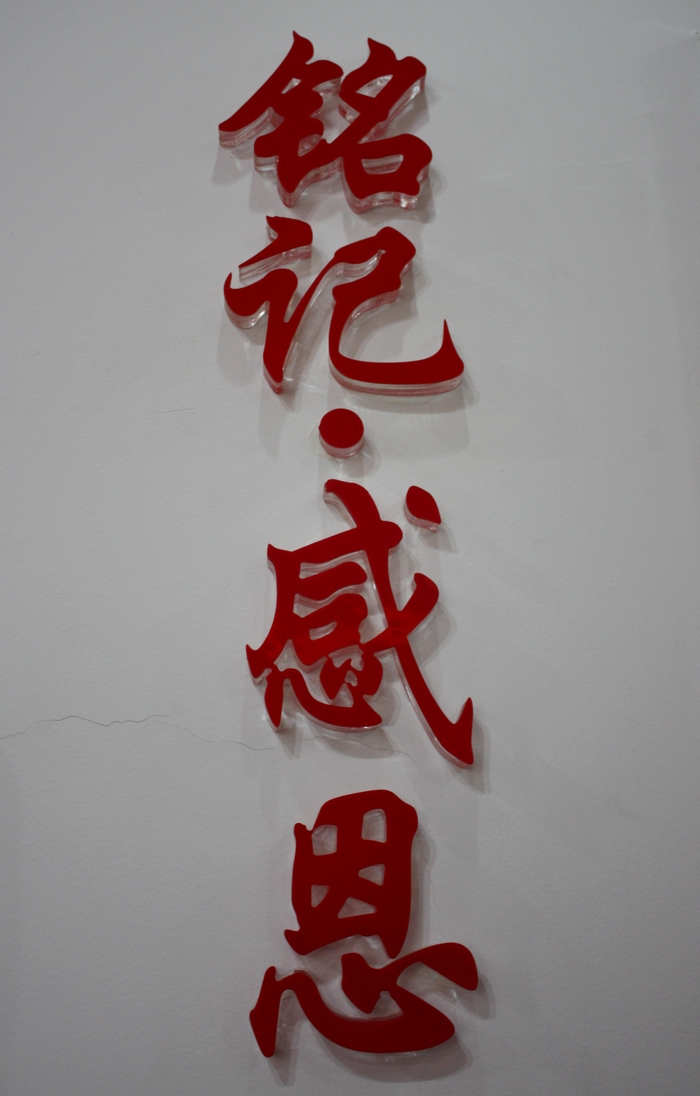 铭记·感恩